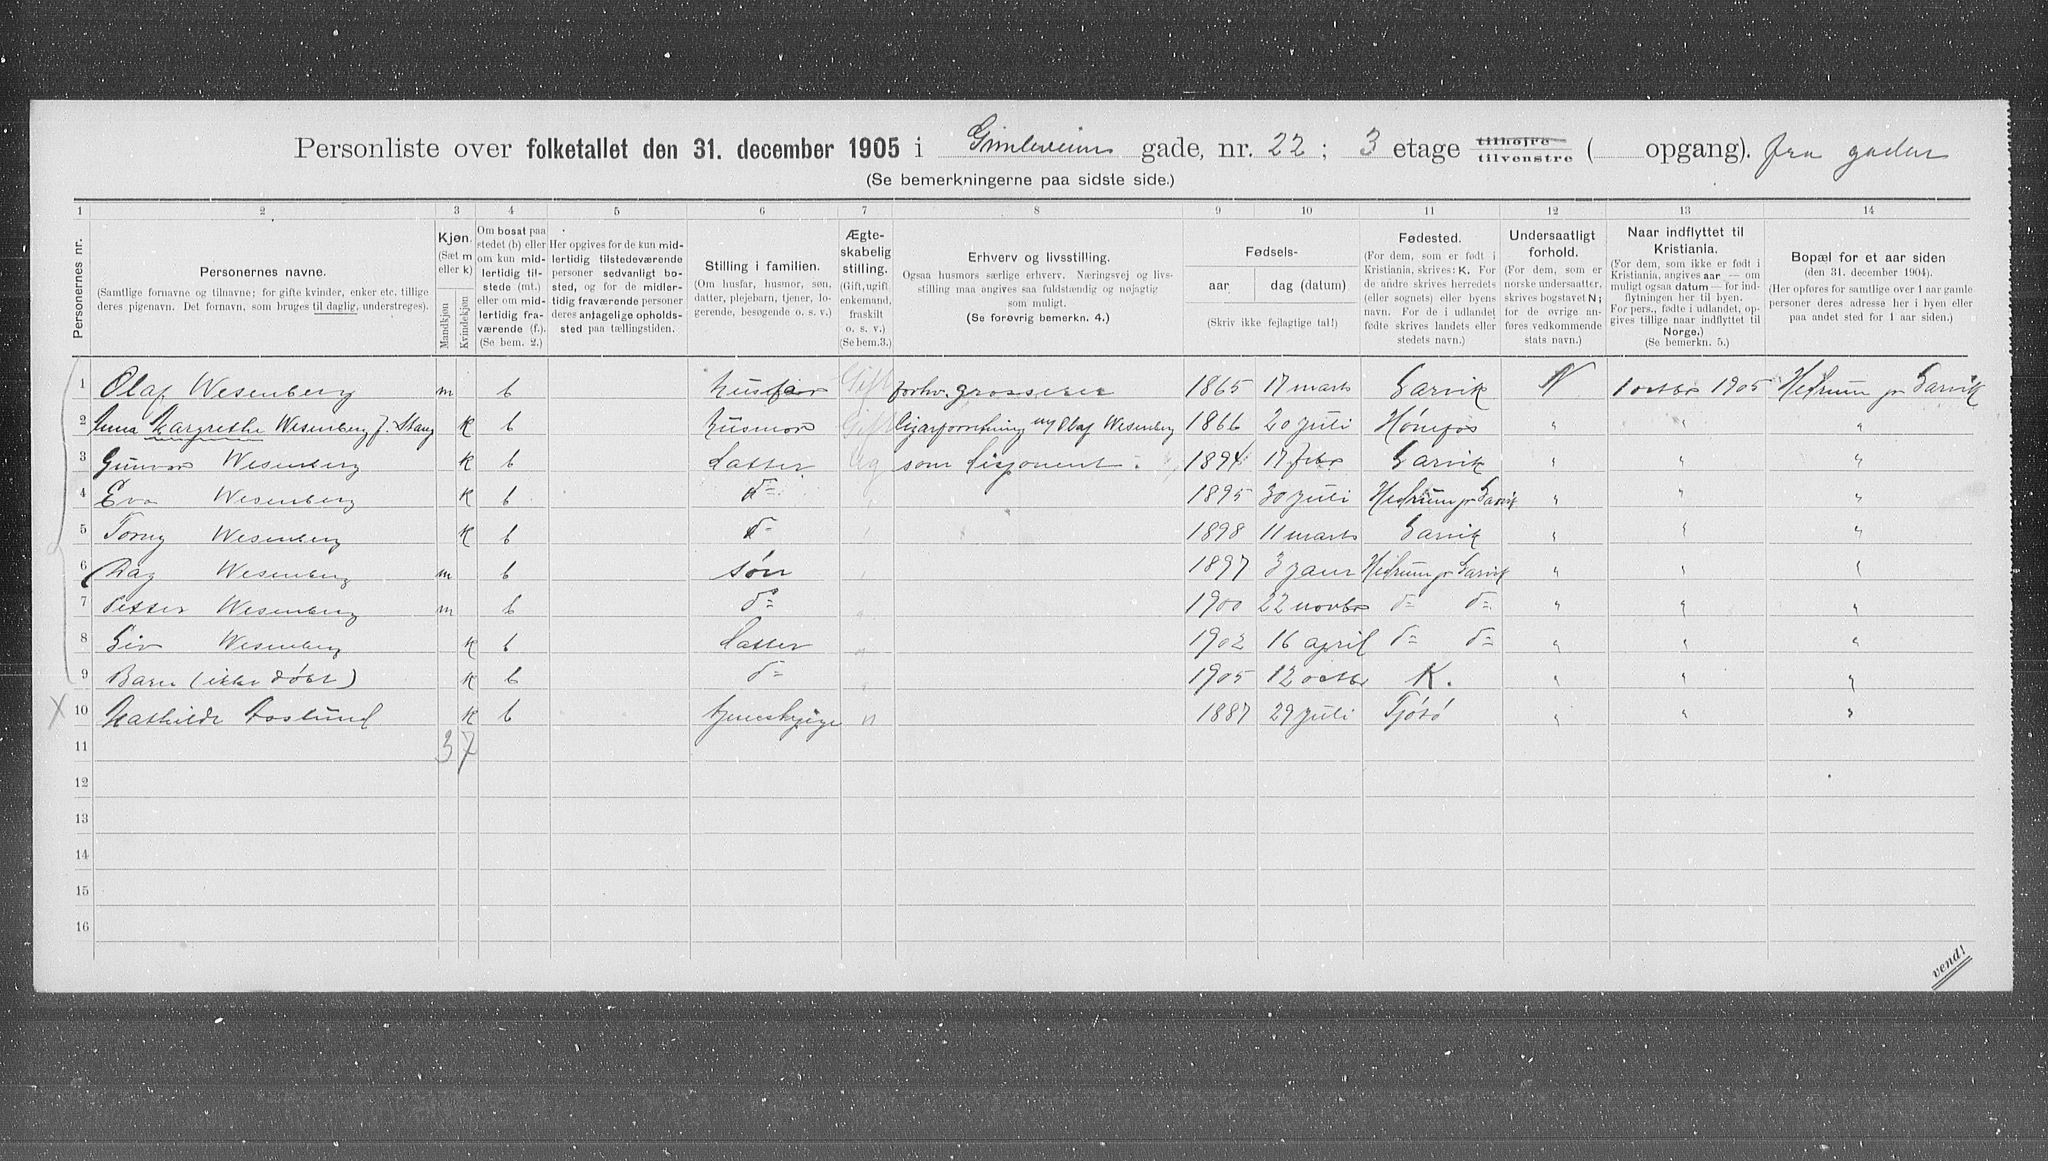 Personliste over folketallet den 31. december 1905 i Gimleveien gade, nr. 22 ; 3 etage tilhøjre tilvenstre ( opgang). fra gaden
(Se bemerkningerne paa sidste side.)
1 2 3 4 5 6 7 8 9 10 11 12 13 14
Personernes nr.
Personernes navne.
(Samtlige fornavne og tilnavne; for gifte kvinder, enker etc. tillige deres pigenavn. Det fornavn, som bruges til daglig, understreges).
Kjøn. (Sæt m eller k)
Mandkjøn Kvindekjøn
Om bosat paa stedet (b) eller om kun midlertidig tilstede (mt.) eller om midlertidig fraværende (f.). (Se bem. 2.)
Her opgives for de kun midlertidig tilstedeværende personer sedvanligt bosted, og for de midlertidig fraværende personer deres antagelige opholdssted paa tællingstiden.
Stilling i familien.
(Om husfar, husmor, søn, datter, plejebarn, tjener, logerende, besøgende o. s. v.)
Ægteskabelig stilling.
(Gift, ugift, enkemand, fraskilt o. s. v.) (Se bem.3.)
Erhverv og livsstilling.
Ogsaa husmors særlige erhverv. Næringsvej og livsstilling maa angives saa fuldstændig og nøjagtig som muligt.
(Se forøvrig bemerkn. 4.)
Fødsels-
aar dag (datum)
(Skriv ikke fejlagtige tal!)
Fødested.
(For dem, som er født i Kristiania, skrives: K. For de andre skrives herredets (eller sognets) eller byens navn. For de i udlandet fødte skrives landets eller stedets navn.)
Undersaatligt forhold.
(For dem, som er norske undersaatter, skrives bogstavet N; for de øvrige anføres vedkommende stats navn.)
Naar indflyttet til Kristiania.
(For dem, som ikke er født i Kristiania, angives aar — om muligt ogsaa datum — for indflytningen her til byen. For pers., fødte i udlandet, opgives tillige naar indflyttet til Norge.) (Se bemerkn. 5.)
Bopæl for et aar siden
(den 31. december 1904).
(Her opføres for samtlige over 1 aar gamle personer deres adresse her i byen eller paa andet sted for 1 aar siden.)
1 Olaf Wesenberg m b husfar Gift forhv. grosserer 1865 17 marts Larvik N 1 octbr 1905 Hedrum pr Larvik
2 Anna Margrethe Wesenberg f. Stang K b husmor Gift Cigarforretning Olaf Wesenberg 1866 20 juli Hønefos " " "
3 Gunvor Wesenberg K b datter Ug som disponent. 1894 17 febr Larvik " " "
4 Eva Wesenberg K b d= 1895 30 juli Hedrum pr Larvik " " "
5 Torny Wesenberg K b d= 1898 11 marts Larvik " " "
6 Dag Wesenberg m b søn 1897 3 janr Hedrum pr Larvik " " "
7 Petter Wesenberg m b d= 1900 22 novbr d= d= " " "
8 Liv Wesenberg K b datter 1902 16 april d= d= " " "
9 Barn (ikke døbt) K b d= 1905 12 octbr K. " " "
X 10 Mathilde Aaslund K b tjenestepige " 1887 29 juli Tjøtø " " "
11 3 7
12
13
14
15
16
vend!